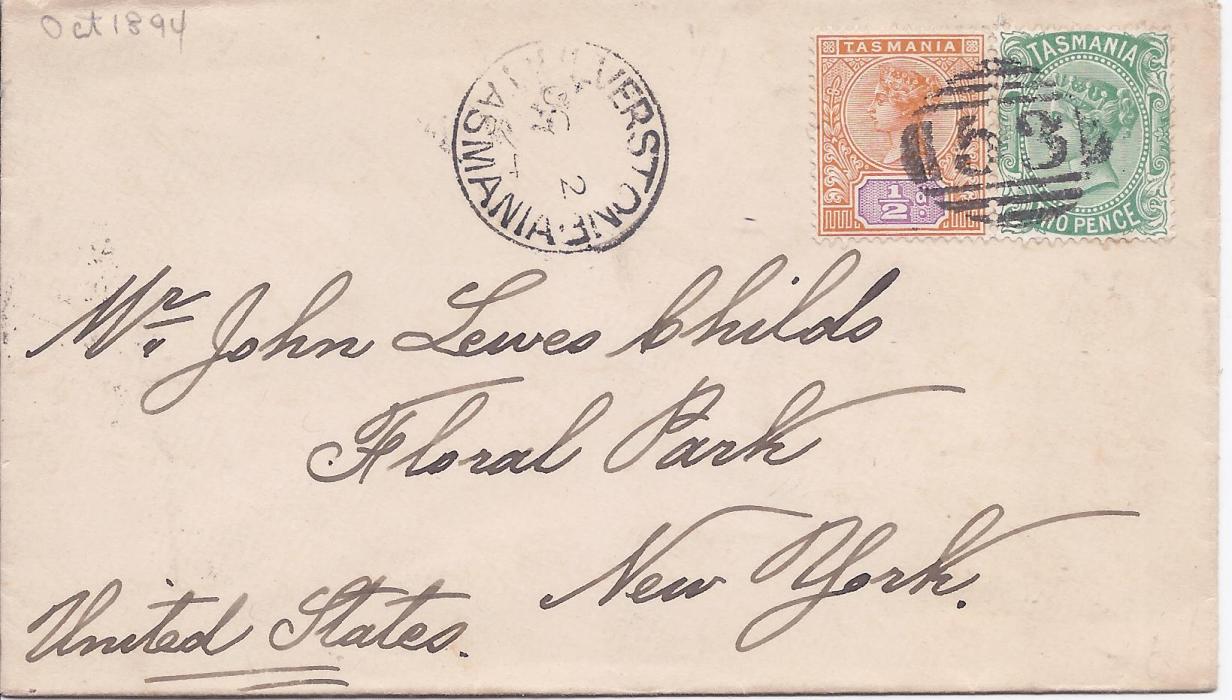 Oct 1894
ULVERSTONE
TASMANIA
2
TASMANIA
½ d
TASMANIA
TWO PENCE
53
Mr John Lewes Childs
Floral Park
New York.
United States.